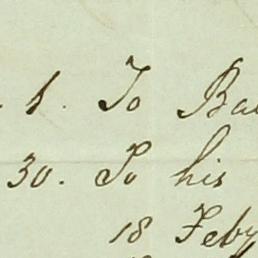 1. To
30. To his
18 Feby